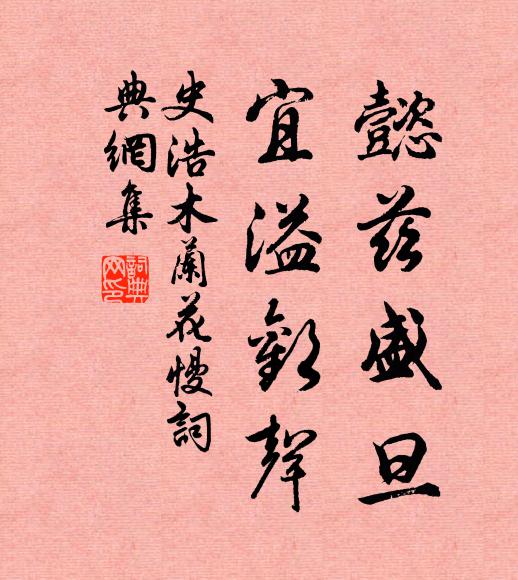 懿茲盛旦
宜溢歡聲
史浩木蘭花慢詞
典網集
詞典網印